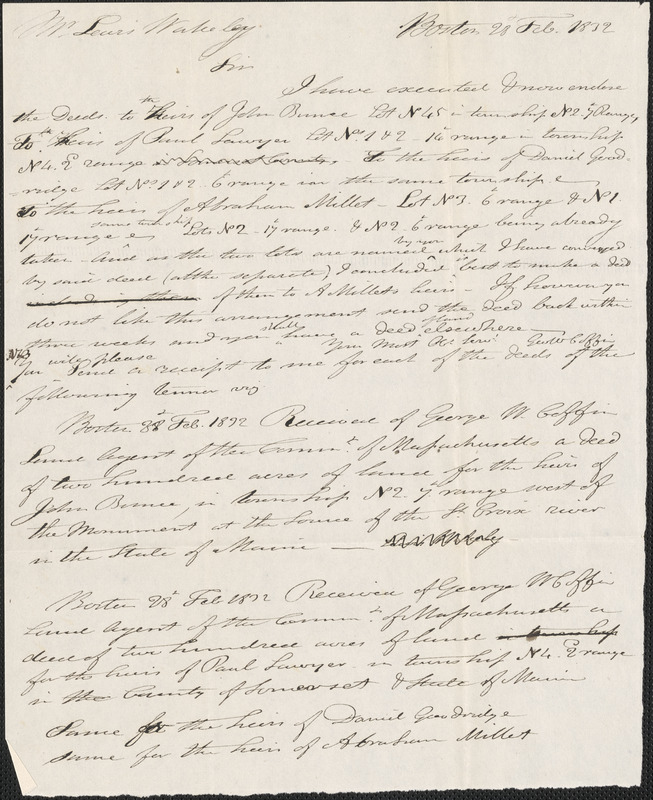 Mr Lewis Wakeley Boston 28 Feb. 1832
Sir
I have executed & now enclose
the Deeds. to the Heirs of John Bunce Lot No 45 in township No 2. 7 Range,
To the Heirs of Paul Sawyer Lot Nos 1 & 2 16 range in township
No 4. 2 range in Somerset County. To the heirs of Daniel Good-
-ridge Lot Nos 1 & 2. 6 range in the same township &
To the heirs of Abraham Millet - Lot No 3. 6 range & No 1
17 range same township & Lots No 2 - 17 range. & No 2. 6 range being already
taken - And as the two lots are named by you which I have conveyed
by said deed (all the separate) I concluded it best to make a deed
of them to A Millets heirs - If however you
do not like this arrangement send the deed back within
three weeks and you shall have a deed of land elsewhere
Your Most Obt Serv. Geo W Coffin
NB You will please
Send a receipt to me for each of the deeds of the
following tenor viz
Boston 28 Feb. 1832 Received of George W. Coffin
Land Agent of the Commth of Massachusetts a deed
of two hundred acres of land for the heirs of
John Bunce, in township No 2. 7 range west of
the Monument at the Source of the St Croix river
in the State of Maine —
Boston 28 Feb 1832 Received of George W Coffin
Land Agent of the Commth of Massachusetts a
deed of two hundred acres of land in township
for the heirs of Paul Sawyer in township No 4. 2 range
in the County of Somerset & State of Maine
Same for the heirs of Daniel Goodridge
same for the heirs of Abraham Millet